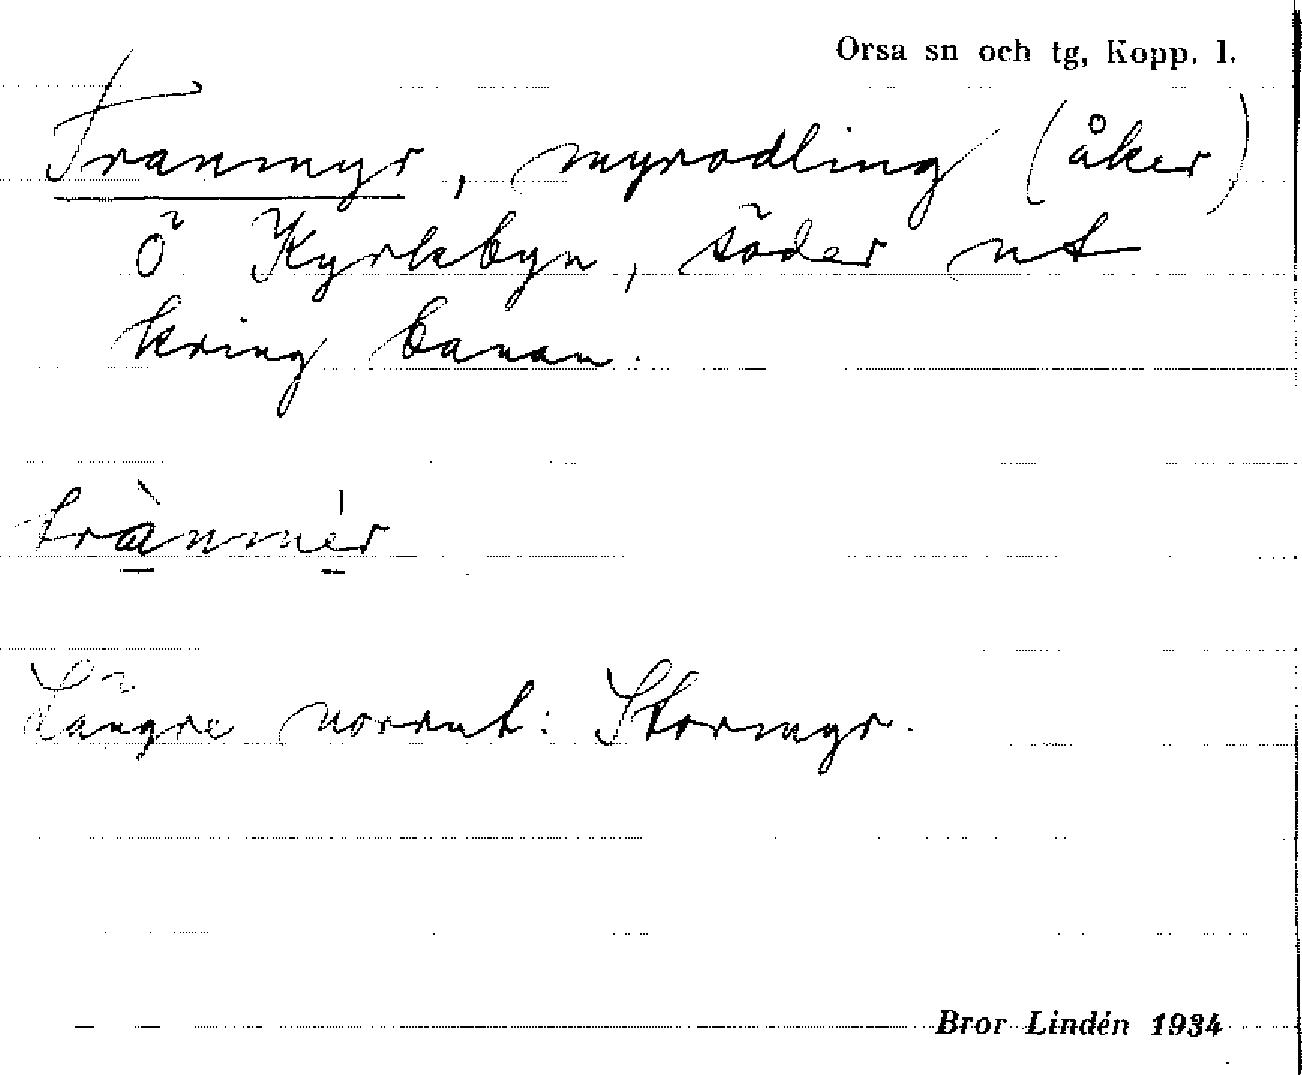 Orsa sn och tg, Kopp. l.
Tranmyr, myrodling (åker)
ö Kyrkbyn, söder ut
kring banan.
trànmér
Längre norrut: Stormyr.
Bror Lindén 1934